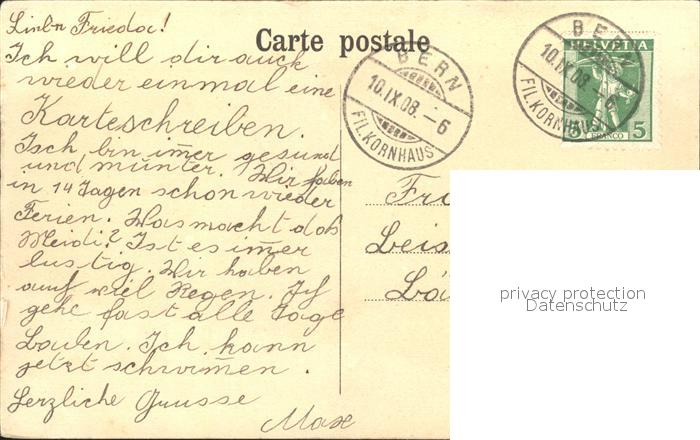 Carte postale
BERN
10.IX.08.–6
FIL.KORNHAUS
BERN
10.IX.08.–6
FIL.KORNHAUS
HELVETIA
5 FRANCO 5
Frieda!
Ich will dir auch
wieder einmal eine
Karteschreiben.
Isch bin im̅er gesund
und munter. Wir haben
in 14 Tagen schon wieder
Ferien. Was macht das
Meidi? Ist es im̅er
lustig. Wir haben
auf viel Regen. Ich
gehe fast alle Tage
Baden. Ich kann
jetzt schwim̅en.
Herzliche Grusse
Max
Fri
Leis
privacy protection
Datenschutz